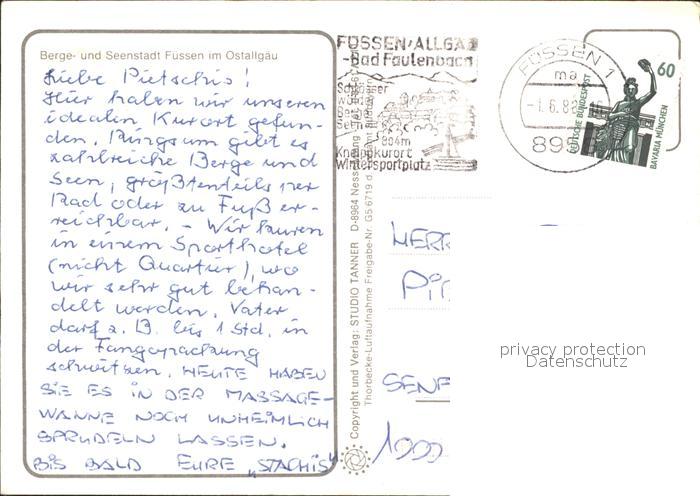 Berge- und Seenstadt Füssen im Ostallgäu
Liebe Pietschis!
Hier haben wir unseren
idealen Kurort gefun-
den. Ringsum gibt es
zahlreiche Berge und
Seen, größtenteils per
Rad oder zu Fuß er-
reichbar. - Wir kuren
in einem Sporthotel
(nicht Quartier), wo
wir sehr gut behan-
delt werden. Vater
darf z. B. bis 1 Std. in
der Fangopackung
schwitzen. HEUTE HABEN
SIE ES IN DER MASSAGE-
WANNE NOCH UNHEIMLICH
SPRUDELN LASSEN.
BIS BALD EURE „STACHIS"
Copyright und Verlag: STUDIO TANNER D-8964 Nesselwang
Thorbecke-Luftaufnahme Freigabe-Nr. G5 6719
FÜSSEN/ALLGÄ
-Bad Faulenbach
Schlösser
804m
Kneippkurort
Wintersportplatz
FÜSSEN 1
ma
-1.6.88
60
DEUTSCHE BUNDESPOST
BAVARIA MÜNCHEN
HERR
SENF
1000
privacy protection
Datenschutz